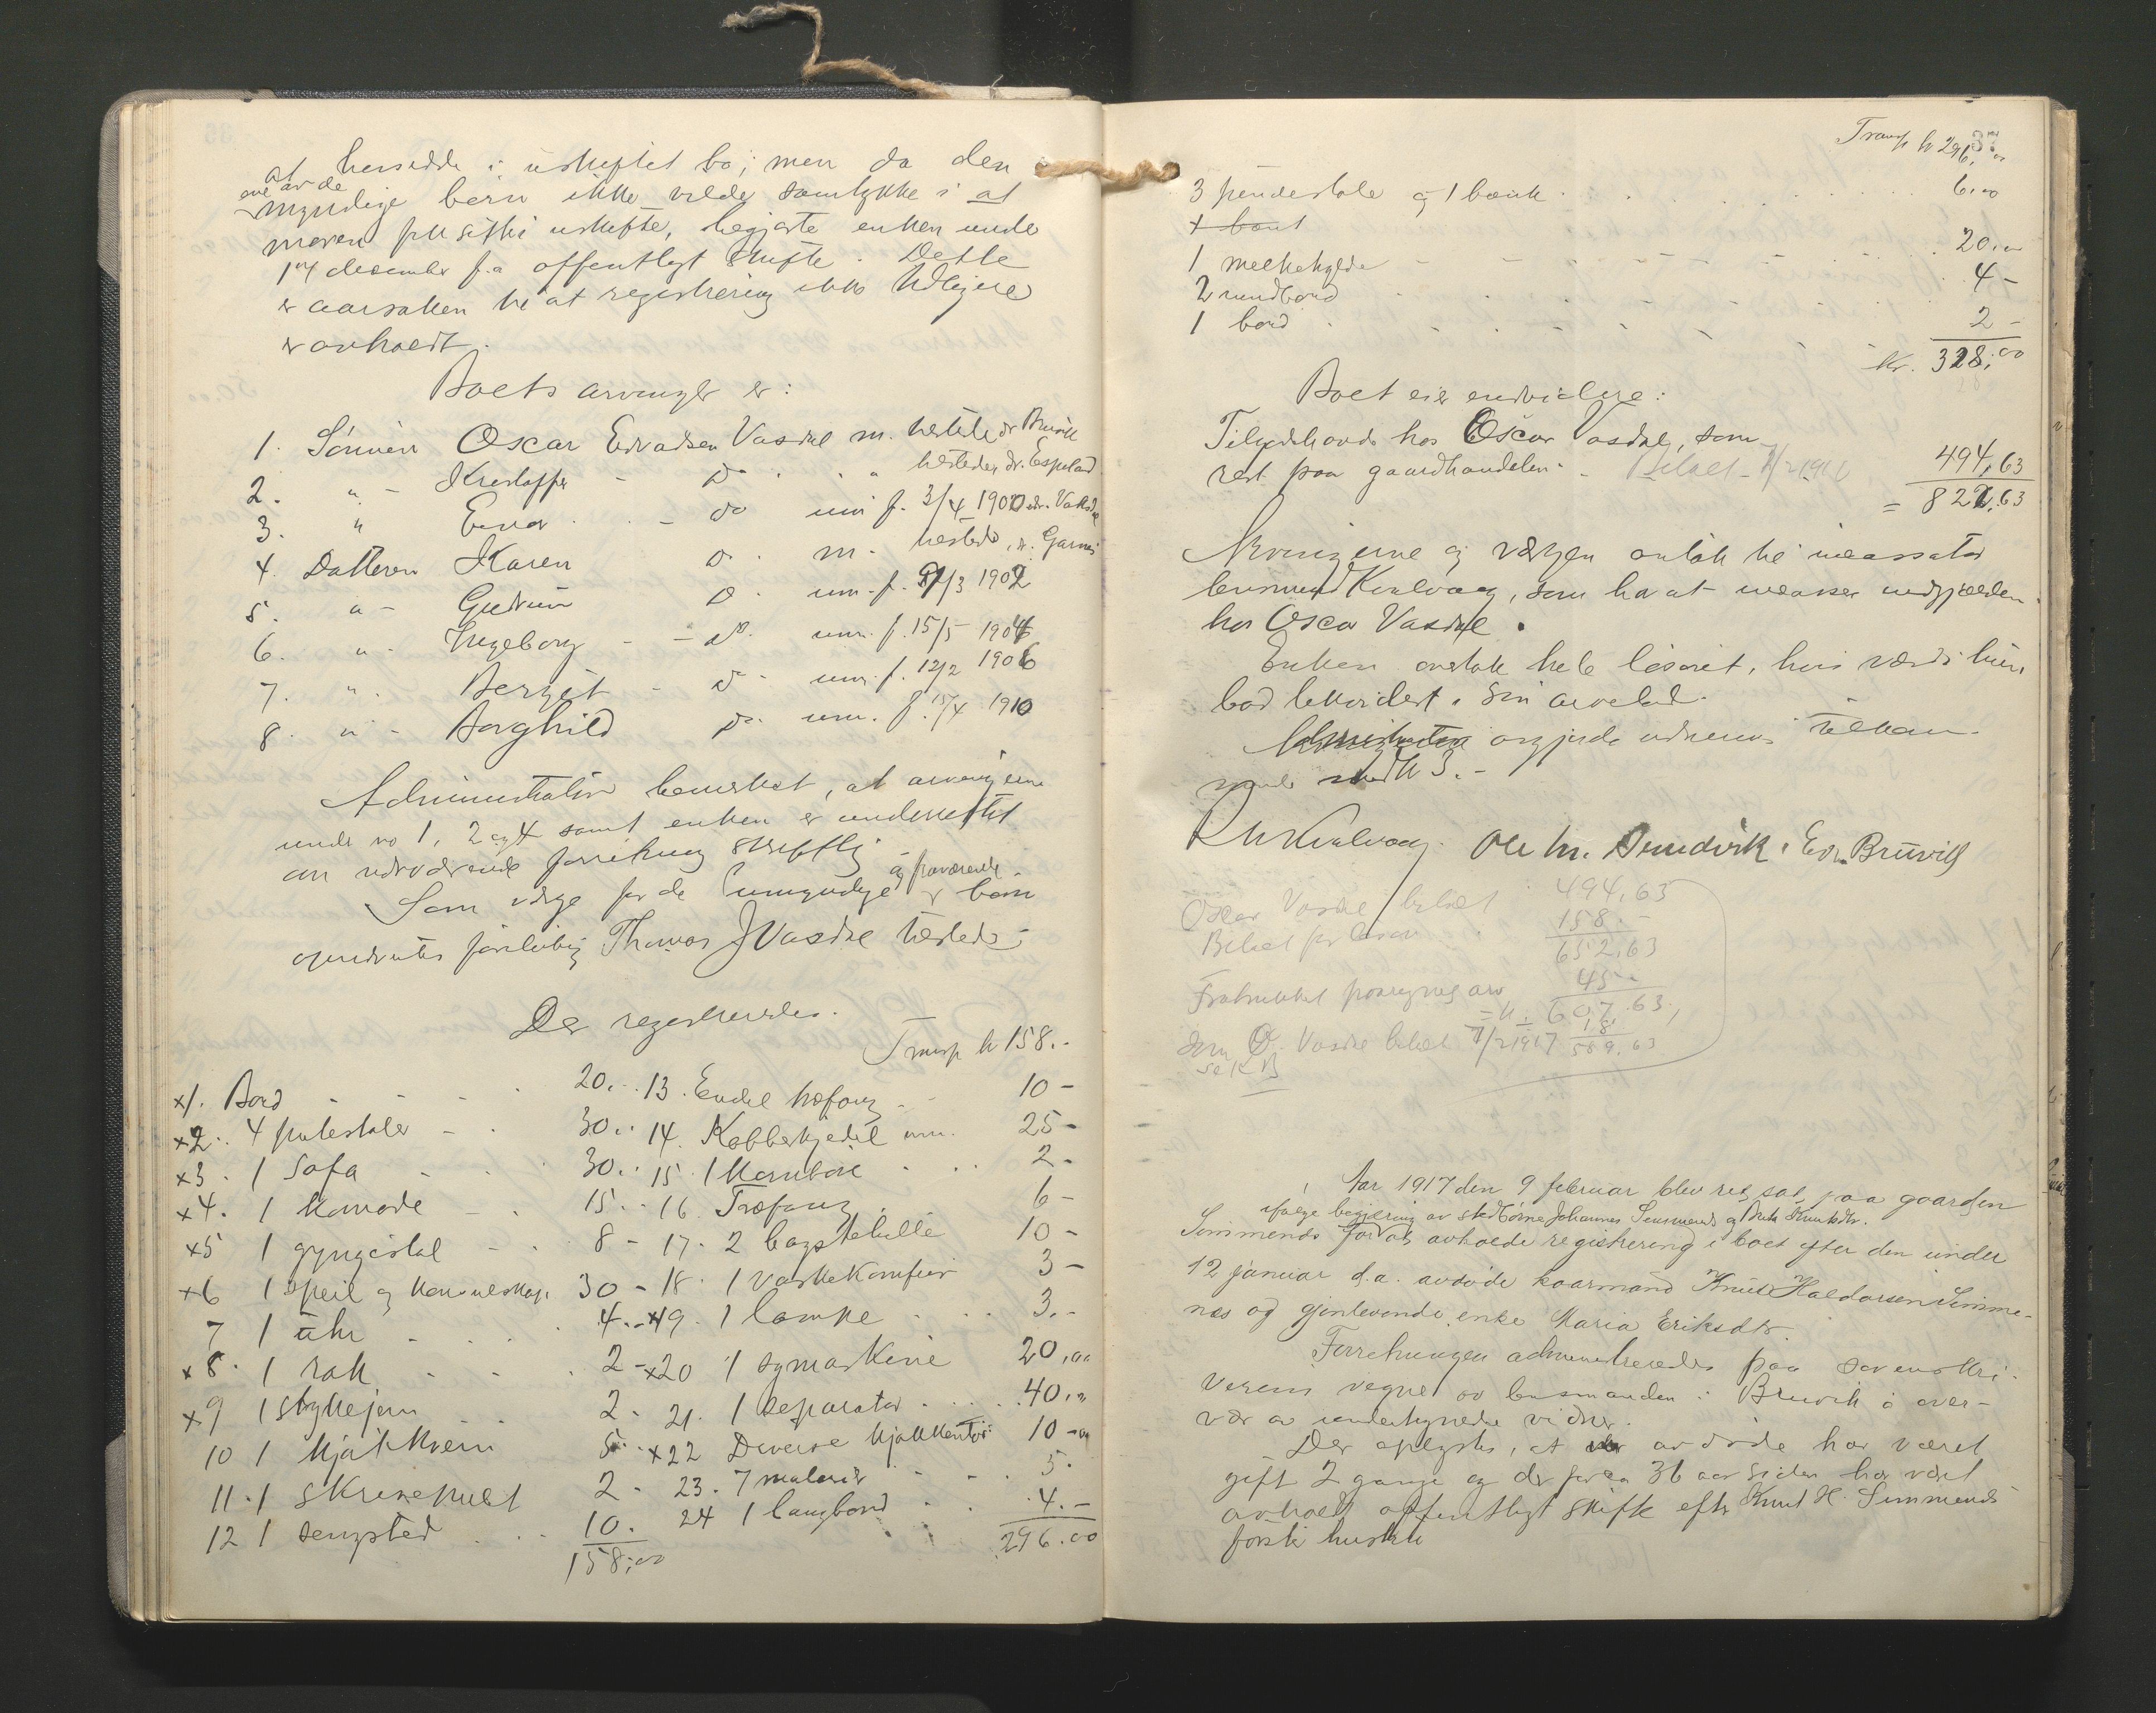 at hensidde i uskiftet bo; men da den
ene av de
myndige børn ikke vilde samtykke i at
moren fik sitte i uskifte, begjærte enken under
14 desember f.a. offentligt skifte. Dette
er aarsaken til at registrering ikke tidligere
er avholdt.
Boets arvinger er:
1. Sønnen Oscar Edvadsen Vasdal m. hersteds dr Bruvik
2. " - Kristoffer - Do " herteder dr. Espeland
3. " Einar - do um f. 3/4 1900 adr. Vaksdal
4. Datteren Karen Do m. hersteds, dr. Garnes
5. " - Gudrun Do um. f. 21/3 1902
6. " - Ingeborg - - do. um. f. 15/5 1904
7. " Bergit - do um. f. 12/2 1906
8. " - Borghild do um. f. 15/4 1910
Administrator bemerket, at arvingerne
under no 1, 2 og 4 samt enken er underrettet
om nærværende forretning skriftlig
og fraværende
Som værge for de umyndige børn
opnævntes foreløbig Thomas J Vasdal hersteds.
Der registrertes.
Transp kr 158.-
x1. Bord - - - 20.-
x2. 4 putestoler - 30.-
x3. 1 Sofa 30.-
x4. 1 Komode - 15.-
x5 1 gyngestol - - 8 -
x6 1 speil og konsolskap 30 -
7 1 uhr 4.-
x8. 1 rak 2 -
x9 1 strykejern 2.-
10 1 Kjøtkvern 5.-
11. 1 skrivepult 2.-
12 1 sengsted 10.-
158,00
13. Endel træfang - 10 -
14. Kobberkjedel 25 -
15 1 2 -
16 Træfang 6 -
17. 2 bagstehelle 10 -
18. 1 vaskekomfur 3 -
x19. 1 lampe 3.-
x20 1 symaskine 20,00
21. 1 Separator 40,00
x22 Diverse kjøkkentøi: 10 -
23. 7 malerier 5.
24 1 langbord 4.-
296.00
37
Transp kr 296,00
3 pindestole og 1 bænk 6.00
1 melkehylde 20.00
2 rundbord 4 -
1 bord 2 -
Kr. 328,00
Boet eier endvidere:
Tilgodehavende hos Oscar Vasdal, som
rest paa gaardhandelen. Betalt 7/2 1917 494,63
= 822,63
Arvingerne og værgen antok til incassator
lensmand Kvalvaag, som har at incassere
hos Oscar Vasdal.
Enken overtok hele løsøret, hvis værdi hun
bad likvidert i sin arvelod.
Administrator avgjorde
R M Kvalvaag. Ole M. Sundvik. Edv. Bruvik
Oscar Vasdal betalt 494,63
Betalt for løsøre 158.-
652,63
Fratrukket 45 -
= kr. 607.63,
18
som O. Vasdal betalt 7/2 1917 589,63
se KB
Aar 1917 den 9 februar blev ret sat paa gaarden
ifølge begjæring av stedbørne Johannes Simmenes og Knutsdtr.
Simmenes for at avholde registrering i boet efter den under
12 januar d.a. avdøde kaarmand Knut Haldorsen Simme-
nes og gjenlevende enke Maria Eriksdtr.
Forretningen administrertes paa sorenskri-
verens vegne av lensmanden i Bruvik i over-
vær av undertegnede vidner.
Der oplystes, at avdøde har været
gift 2 gange og der for ca 36 aar siden har været
avholdt offentligt skifte efter Knut H. Simmenes
første hustru